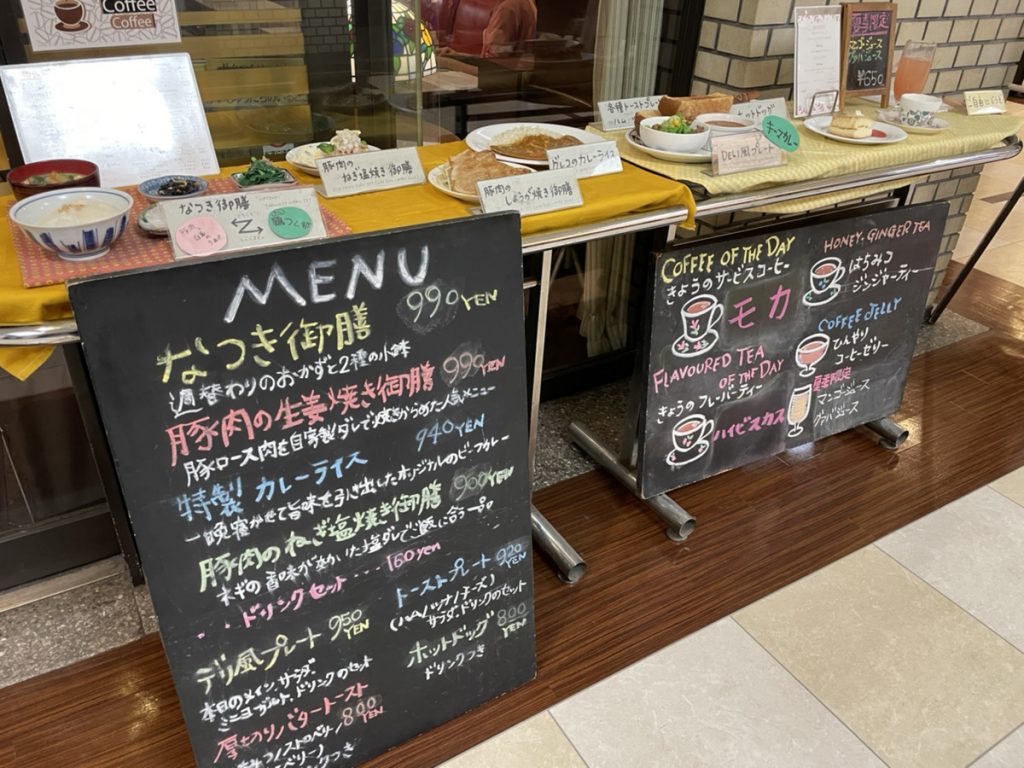 Coffee
Coffee
なつき御膳
豚肉の
ねぎ塩焼き御膳
豚肉の
しょうが焼き御膳
カレーライス
各種トーストプレート
ホットドッグ
キーマカレー
DELI風プレート
夏季限定
マンゴージュース
グァバジュース
¥650
MENU
なつき御膳 990YEN
週替わりのおかずと2種の小鉢
豚肉の生姜焼き御膳 990YEN
豚ロース肉を自家製ダレで焼きからめた人気メニュー
特製カレーライス 940YEN
一晩寝かせて旨味を引き出したオリジナルのビーフカレー
豚肉のねぎ塩焼き御膳 900YEN
ネギの旨味が効いた塩ダレでご飯に合う一品
・・ドリンクセット・・・160yen
デリ風プレート 950YEN
本日のメイン、サラダ、
ミニヨーグルト、ドリンクのセット
厚切りバタートースト
800YEN
トーストプレート 920YEN
(ハム/ツナ/チーズ)
サラダ、ドリンクのセット
ホットドッグ 800YEN
ドリンクつき
COFFEE OF THE DAY
きょうのサービスコーヒー
モカ
FLAVOURED TEA
OF THE DAY
きょうのフレーバーティー
ハイビスカス
HONEY, GINGER TEA
はちみつ
ジンジャーティー
COFFEE JELLY
ひんやり
コーヒーゼリー
夏季限定
マンゴージュース
グァバジュース